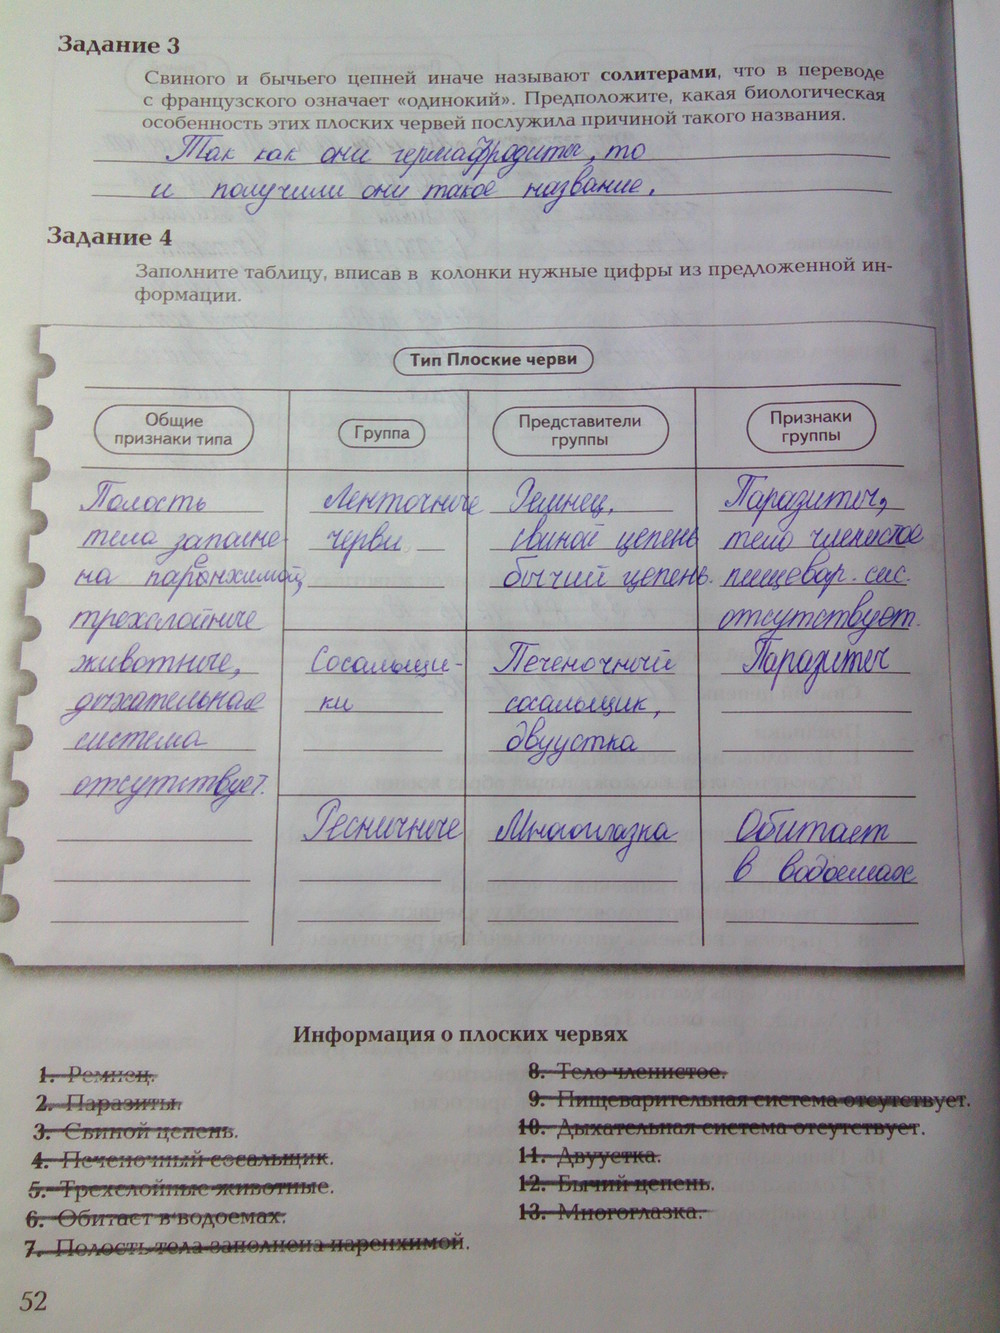 Задание 3
Свиного и бычьего цепней иначе называют солитерами, что в переводе
с французского означает «одинокий». Предположите, какая биологическая
особенность этих плоских червей послужила причиной такого названия.
Так как они гермафродиты, то
и получили они такое название.
Задание 4
Заполните таблицу, вписав в колонки нужные цифры из предложенной ин-
формации.
Тип Плоские черви
Общие
признаки типа
Группа
Представители
группы
Признаки
группы
Полость
тела заполне-
на паренхимой,
трехслойные
животные,
дыхательная
система
отсутствует.
Ленточные
черви
Ремнец,
свиной цепень
бычий цепень.
Паразиты,
тело членистое
пищевар. сис.
отсутствует.
Сосальщи-
ки
Печеночный
сосальщик,
двуустка
Паразиты
Ресничные
Многоглазка
Обитает
в водоемах
Информация о плоских червях
1. Ремнец.
2. Паразиты.
3. Свиной цепень.
4. Печеночный сосальщик.
5. Трехслойные животные.
6. Обитает в водоемах.
7. Полость тела заполнена паренхимой.
8. Тело членистое.
9. Пищеварительная система отсутствует.
10. Дыхательная система отсутствует.
11. Двуустка.
12. Бычий цепень.
13. Многоглазка.
52